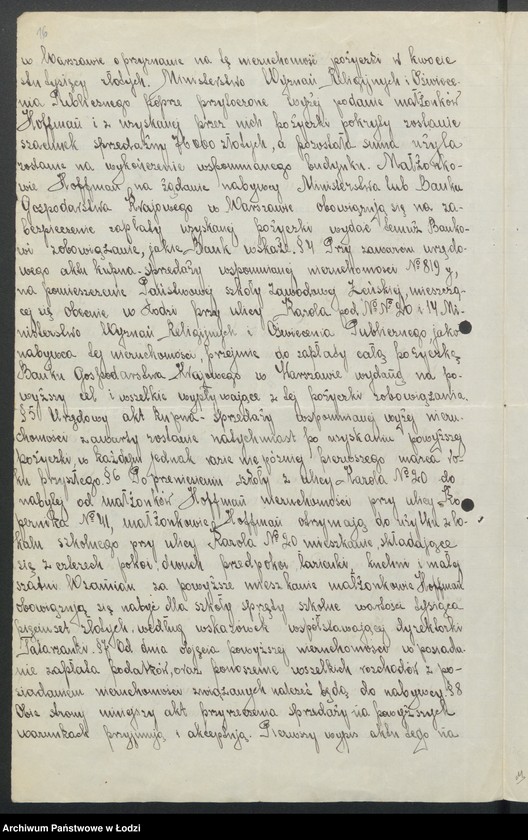 16
w Warszawie o przyznanie na tę nieruchomość pożyczki w kwocie
stu tysięcy złotych. Ministerstwo Wyznań Religijnych i Oświece-
nia Publicznego poprze przytoczone wyżej podanie małżonków
Hoffman i z uzyskanej przez nich pożyczki pokryty zostanie
szacunek sprzedażny 78000 złotych, a pozostała suma użyta
zostanie na wykończenie wspomnianego budynku. Małżonko-
wie Hoffman na żądanie nabywcy Ministerstwa lub Banku
Gospodarstwa Krajowego w Warszawie obowiązują się na za-
bezpieczenie zapłaty uzyskanej pożyczki wydać temuż Banko-
wi zobowiązanie, jakie Bank wskaże. § 4 Przy zawarciu urzędo-
wego aktu kupna-sprzedaży wspomnianej nieruchomości № 819 g,
na pomieszczenie Państwowej szkoły Zawodowej Żeńskiej, mieszczą-
cej się obecnie w Łodzi przy ulicy Karola pod №№ 20 i 14 Mi-
nisterstwo Wyznań Religijnych i Oświecenia Publicznego, jako
nabywca tej nieruchomości, przejmie do zapłaty całą pożyczkę
Banku Gospodarstwa Krajowego w Warszawie wydaną na po-
wyższy cel i wszelkie wypływające z tej pożyczki zobowiązania.
§ 5 Urzędowy akt kupna-sprzedaży wspomnianej wyżej nieru-
chomości zawarty zostanie natychmiast po uzyskaniu powyższej
pożyczki, w każdym jednak razie nie później pierwszego marca ro-
ku przyszłego. § 6 Po przeniesieniu szkoły z ulicy Karola № 20 do
nabytej od małżonków Hoffman nieruchomości przy ulicy Ko-
pernika № 41, małżonkowie Hoffman otrzymają do użytku z lo-
kalu szkolnego przy ulicy Karola № 20 mieszkanie składające
się z czterech pokoi, dwuch przedpokoi, łazienki, kuchni i małej
szatni. Wzamian za powyższe mieszkanie małżonkowie Hoffman
obowiązują się nabyć dla szkoły sprzęty szkolne wartości tysiąca
pięciuset złotych, według wskazówek współstawającej dyrektorki
Tatarzanki. § 7 Od dnia objęcia powyższej nieruchomości w posiada-
nie zapłata podatków, oraz ponoszenie wszelkich rozchodów z po-
siadaniem nieruchomości związanych należeć będą do nabywcy. § 8
Obie strony niniejszy akt przyrzeczenia sprzedaży na powyższych
warunkach przyjmują i akceptują. Pierwszy wypis aktu tego na
Archiwum Państwowe w Łodzi